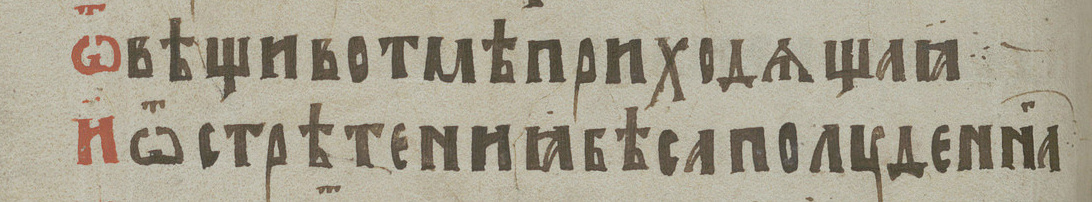 ѿвѣщивотмѣприходѧщаꙗ
иѿстрѣтениꙗбѣсаполуденна